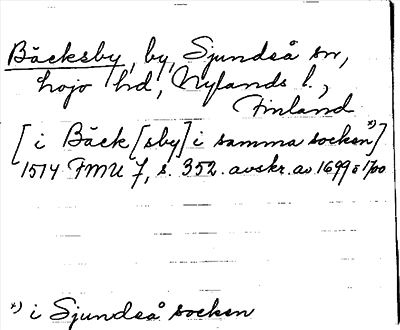 Bäcksby, by, Sjundeå sn,
Lojo hd, Nylands l.,
Finland
[i Bäck[sby] i samma socken *)]
1514 FMU 7, s. 352. avskr. av 1699 o 1700
*) i Sjundeå socken